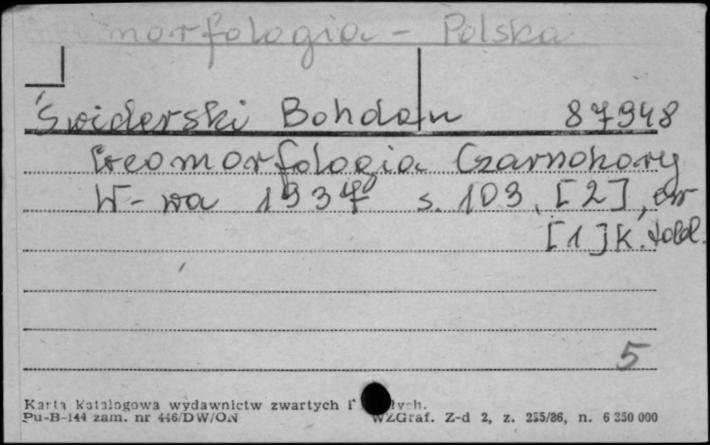 morfologia - Polska
Świderski Bohdan 87948
Geomorfologia Czarnohory
W-wa 1937 s. 103, [2],
[1] k. tabl.
5
Karta katalogowa wydawnictw zwartych i
Pu-B-144 zam. nr 446/DW/ON WZGraf. Z-d 2, z. 255/86, n. 6 350 000